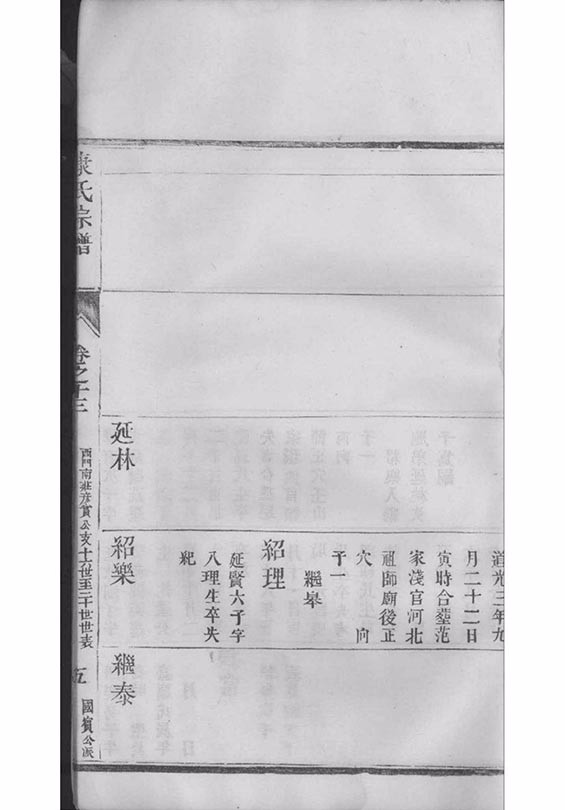 道光三年九
月二十二日
寅時合塟范
家淺官河北
祖師廟後正
穴　向
子一
繼皋
紹理
延賢六子字
八理生卒失
紀
延林
紹樂
繼泰
康氏宗譜
卷之十三
西門南莊彥賓公支十六世至二十世世表
五
國賓公派